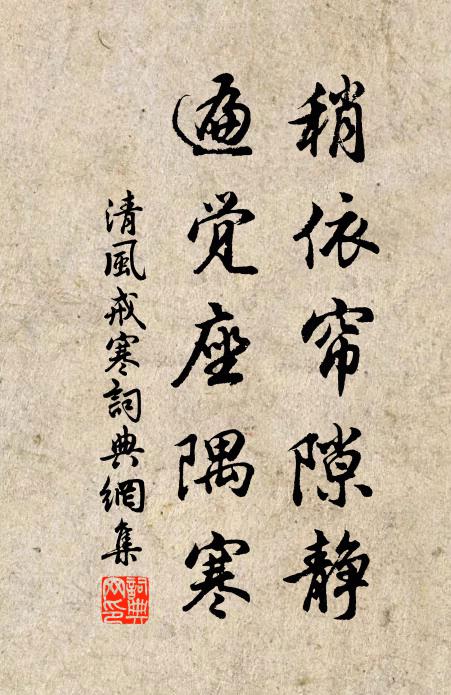 稍依帘隙静
遍觉座隅寒
清風戒寒詞典網集
詞典网印